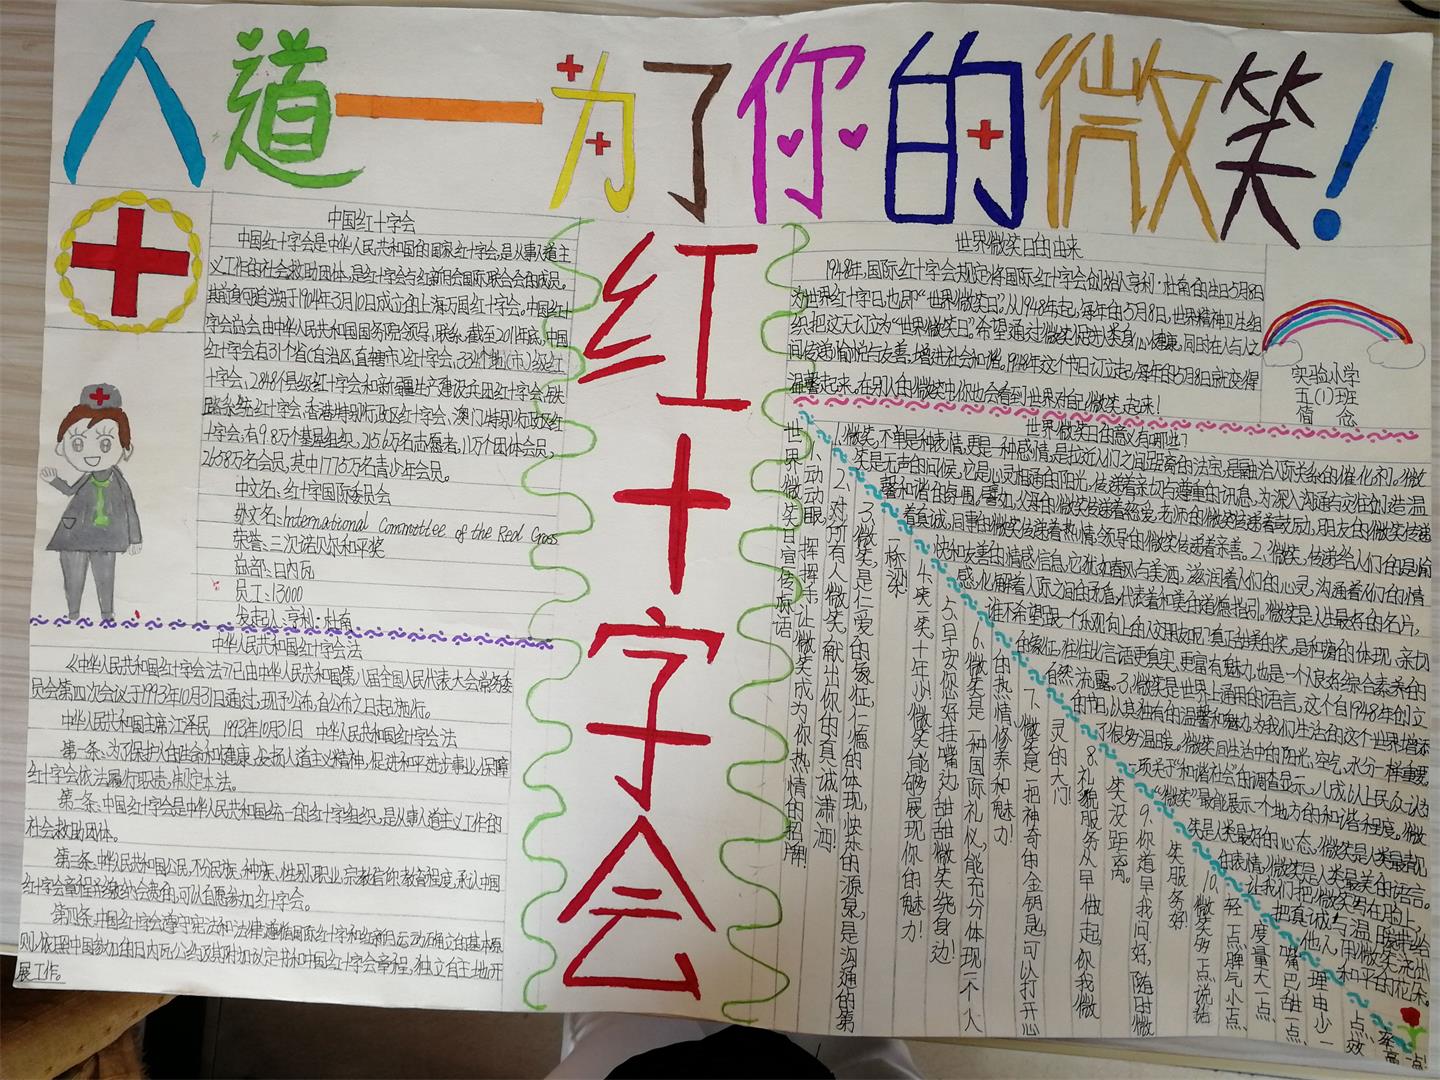 人道一为了你的微笑!
红十字会
中国红十字会
中国红十字会是中华人民共和国的国家红十字会,是从事人道主
义工作的社会救助团体,是红十字会与红新月会国际联合会的成员。
其前身可追溯于1904年3月10日成立的上海万国红十字会。中国红十
字会总会由中华人民共和国国务院领导、联系。截至2011年底,中国
红十字会有31个省(自治区、直辖市)红十字会、334个地(市)级红
十字会、2848个县级红十字会和新疆生产建设兵团红十字会、铁
路系统红十字会、香港特别行政区红十字会、澳门特别行政区红
十字会,有9.8万个基层组织,
2658万名会员,其中1775万名青少年会员。
中文名:红十字国际委员会
外文名:International Committee of the Red Cross
荣誉:三次诺贝尔和平奖
总部:日内瓦
员工:13000
发起人:亨利·杜南
中华人民共和国红十字会法
《中华人民共和国红十字会法》已由中华人民共和国第八届全国人民代表大会常务委
员会第四次会议于1993年10月31日通过,现予公布,自公布之日起施行。
中华人民共和国主席江泽民 1993年10月31日 中华人民共和国红十字会法
第一条、为了保护人的生命和健康,发扬人道主义精神,促进和平进步事业,保障
红十字会依法履行职责,制定本法。
第二条、中国红十字会是中华人民共和国统一的红十字组织,是从事人道主义工作的
社会救助团体。
第三条、中华人民共和国公民,不分民族、种族、性别、职业、宗教信仰、教育程度,承认中国
红十字会章程并缴纳会费的,可以自愿参加红十字会。
第四条、中国红十字会遵守宪法和法律,遵循国际红十字和红新月运动确立的基本原
则,依照中国参加的日内瓦公约及其附加议定书和中国红十字会章程,独立自主地开
展工作。
世界微笑日的由来
1948年,国际红十字会规定将国际红十字会创始人亨利·杜南的生日5月8日
为世界红十字日,也即“世界微笑日”。从1948年起,每年的5月8日,世界精神卫生组
织把这天订立为“世界微笑日”。希望通过微笑促进人类身心健康,同时在人与人之
间传递愉悦与友善,增进社会和谐。1948年这个节日订立起,每年的5月8日就变得
温馨起来。在别人的微笑中,你也会看到世界对自己微笑起来!
实验小学
五(1)班
值 念
世界微笑日的意义有哪些?
1.微笑,不单是种表情,更是一种感情,是拉近人们之间距离的法宝,是融洽人际关系的催化剂。微
笑是无声的问候,它是心灵相通的阳光,传递着亲切与尊重的讯息,为深入沟通与交往创造温
馨和谐的氛围。譬如,父母的微笑传递着慈爱,老师的微笑传递着鼓励,朋友的微笑传递
着真诚,同事的微笑传递着热情,领导的微笑传递着亲善。2.微笑,传递给人们的是愉
悦和友善的情感信息,它犹如春风与美酒,滋润着人们的心灵,沟通着人们的情
感,化解着人际之间的矛盾,代表着和美的道德指引。微笑是人生最好的名片,
谁不希望跟一个乐观向上的人交朋友呢?真正甜美的笑,是和谐的体现、亲切
的象征,往往比言语更真实、更富有魅力,也是一个人良好综合素养的
自然流露。3.微笑是世界上通用的语言,这个自1948年创立
的节日,以其独有的温馨和魅力,为我们生活的这个世界增添
了很多温暖。微笑同生活中的阳光、空气、水分一样重要。
一项关于“和谐社会”的调查显示,八成以上民众认为
“微笑”最能展示一个地方的和谐程度。微
笑是人类最好的心态,微笑是人类最美观
的表情,微笑是人类最美的语言。
让我们把微笑写在脸上,
把真诚与温暖带给
他人,用微笑浇出
和平的花朵。
世界微笑日宣传标语
1、小动动眼,挥挥手,让微笑成为你热情的招牌!
2、对所有人微笑,献出你的真诚潇洒!
3、微笑,是仁爱的象征,仁德的体现,快乐的源泉,是沟通的第
一桥梁!
4、笑一笑,十年少,微笑能够展现你的魅力!
5、早安您好挂嘴边,甜甜微笑绕身边!
6、微笑是一种国际礼仪,能充分体现一个人
的热情、修养和魅力!
7、微笑是一把神奇的金钥匙,可以打开心
灵的大门!
8、礼貌服务从早做起,你我微
笑没距离。
9、你道早我问好,随时微
笑服务好。
10、微笑多一点,说话
轻一点,脾气小一点、
度量大一点、
嘴巴甜一点、
理由少一
点、效
率高一点!